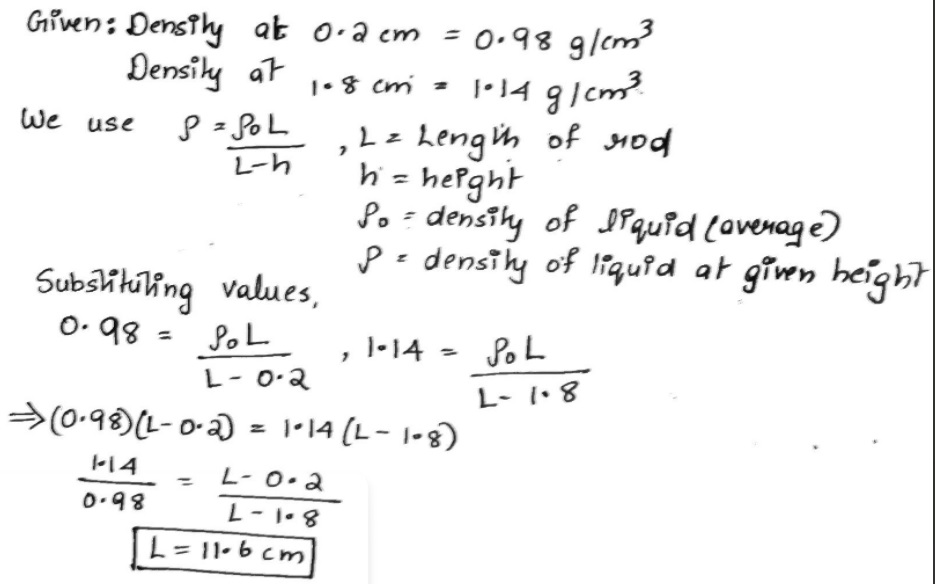 Given: Density at 0.2 cm = 0.98 g/cm³
Density at 1.8 cm = 1.14 g/cm³
We use ρ = ρ₀L / L-h , L = Length of rod
h = height
ρ₀ = density of liquid (average)
ρ = density of liquid at given height
Substituting values,
0.98 = ρ₀L / L - 0.2 , 1.14 = ρ₀L / L - 1.8
⇒ (0.98)(L - 0.2) = 1.14 (L - 1.8)
1.14 / 0.98 = L - 0.2 / L - 1.8
L = 11.6 cm